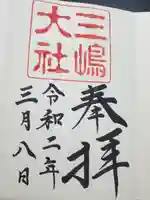 三嶋
大社
奉拝
令和二年
三月八日